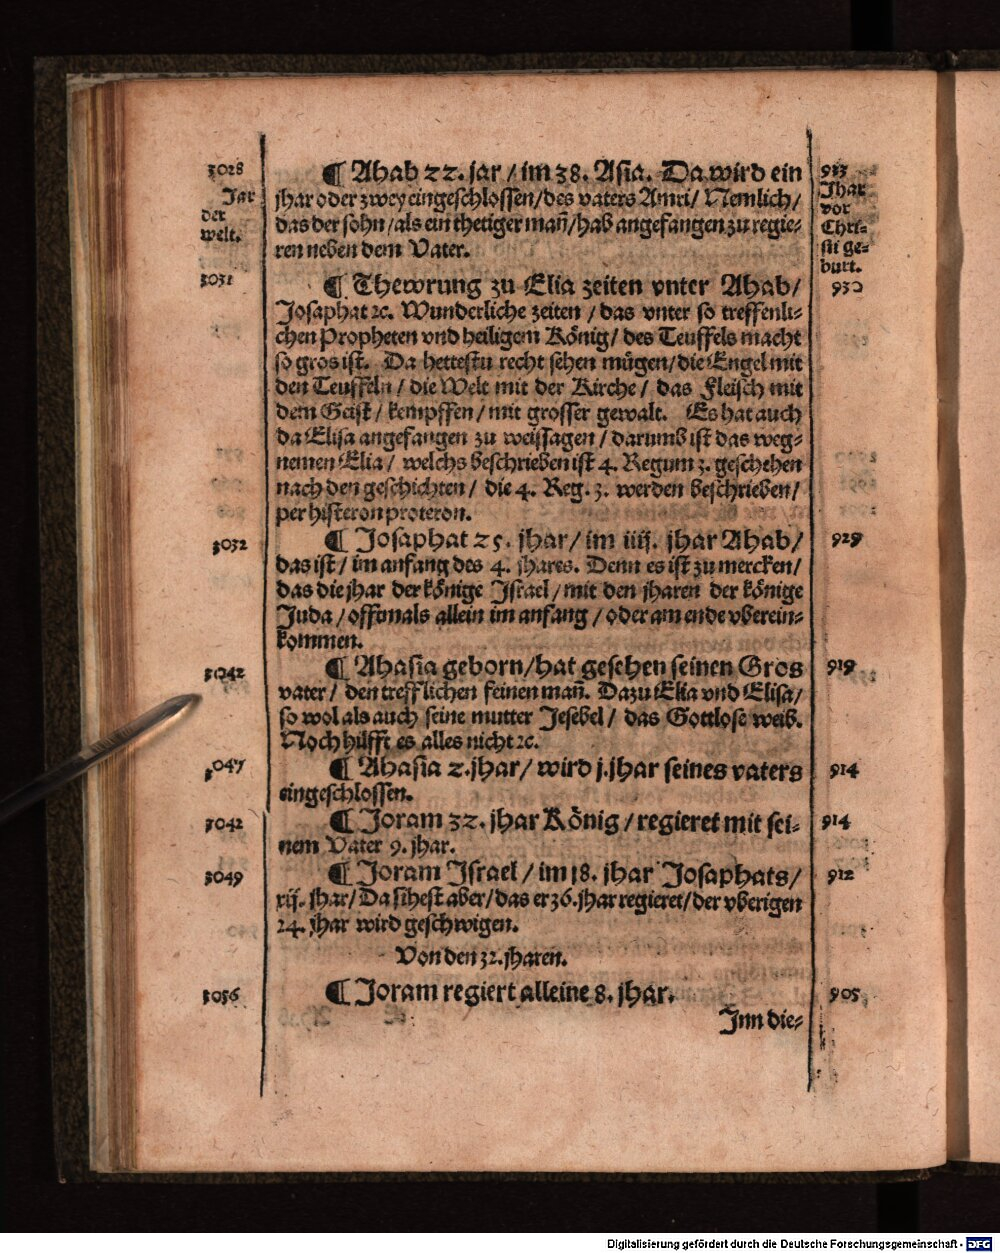 3028
Jar
der
welt.
¶ Ahab 22. jar / im 38. Asia. Da wird ein
jhar oder zwey eingeschlossen / des vaters Amri / Nemlich /
das der sohn / als ein thetiger man̄ / hab angefangen zu regie⸗
ren neben dem Vater.
913
Jhar
vor
Chri⸗
sti ge⸗
burt.
3031
¶ Thewrung zu Elia zeiten vnter Ahab /
Josaphat ꝛc. Wunderliche zeiten / das vnter so treffenli⸗
chen Propheten vnd heiligem König / des Teuffels macht
so gros ist. Da hettestu recht sehen mügen / die Engel mit
den Teuffeln / die Welt mit der Kirche / das Fleisch mit
dem Geist / kempffen / mit grosser gewalt. Es hat auch
da Elisa angefangen zu weissagen / darumb ist das weg⸗
nemen Elia / welchs beschrieben ist 4. Regum 3. geschehen
nach den geschichten / die 4. Reg. 3. werden beschrieben /
per histeron proteron.
930
3032
¶ Josaphat 25. jhar / im iiij. jhar Ahab /
das ist / im anfang des 4. jhares. Denn es ist zu mercken /
das die jhar der könige Jsrael / mit den jharen der könige
Juda / offtmals allein im anfang / oder am ende vberein⸗
kommen.
929
3042
¶ Ahasia geborn / hat gesehen seinen Gros
vater / den trefflichen feinen man̄. Dazu Elia vnd Elisa /
so wol als auch seine mutter Jesebel / das Gottlose weib.
Noch hilfft es alles nicht ꝛc.
919
3047
¶ Ahasia 2. jhar / wird j. jhar seines vaters
eingeschlossen.
914
3042
¶ Joram 32. jhar König / regieret mit sei⸗
nem Vater 9. jhar.
914
3049
¶ Joram Jsrael / im 18. jhar Josaphats /
xij. jhar / Da sihest aber / das er 36. jhar regieret / der vberigen
24. jhar wird geschwigen.
912
Von den 32. jharen.
3056
¶ Joram regiert alleine 8. jhar.
905
Jnn die⸗
Digitalisierung gefördert durch die Deutsche Forschungsgemeinschaft - DFG